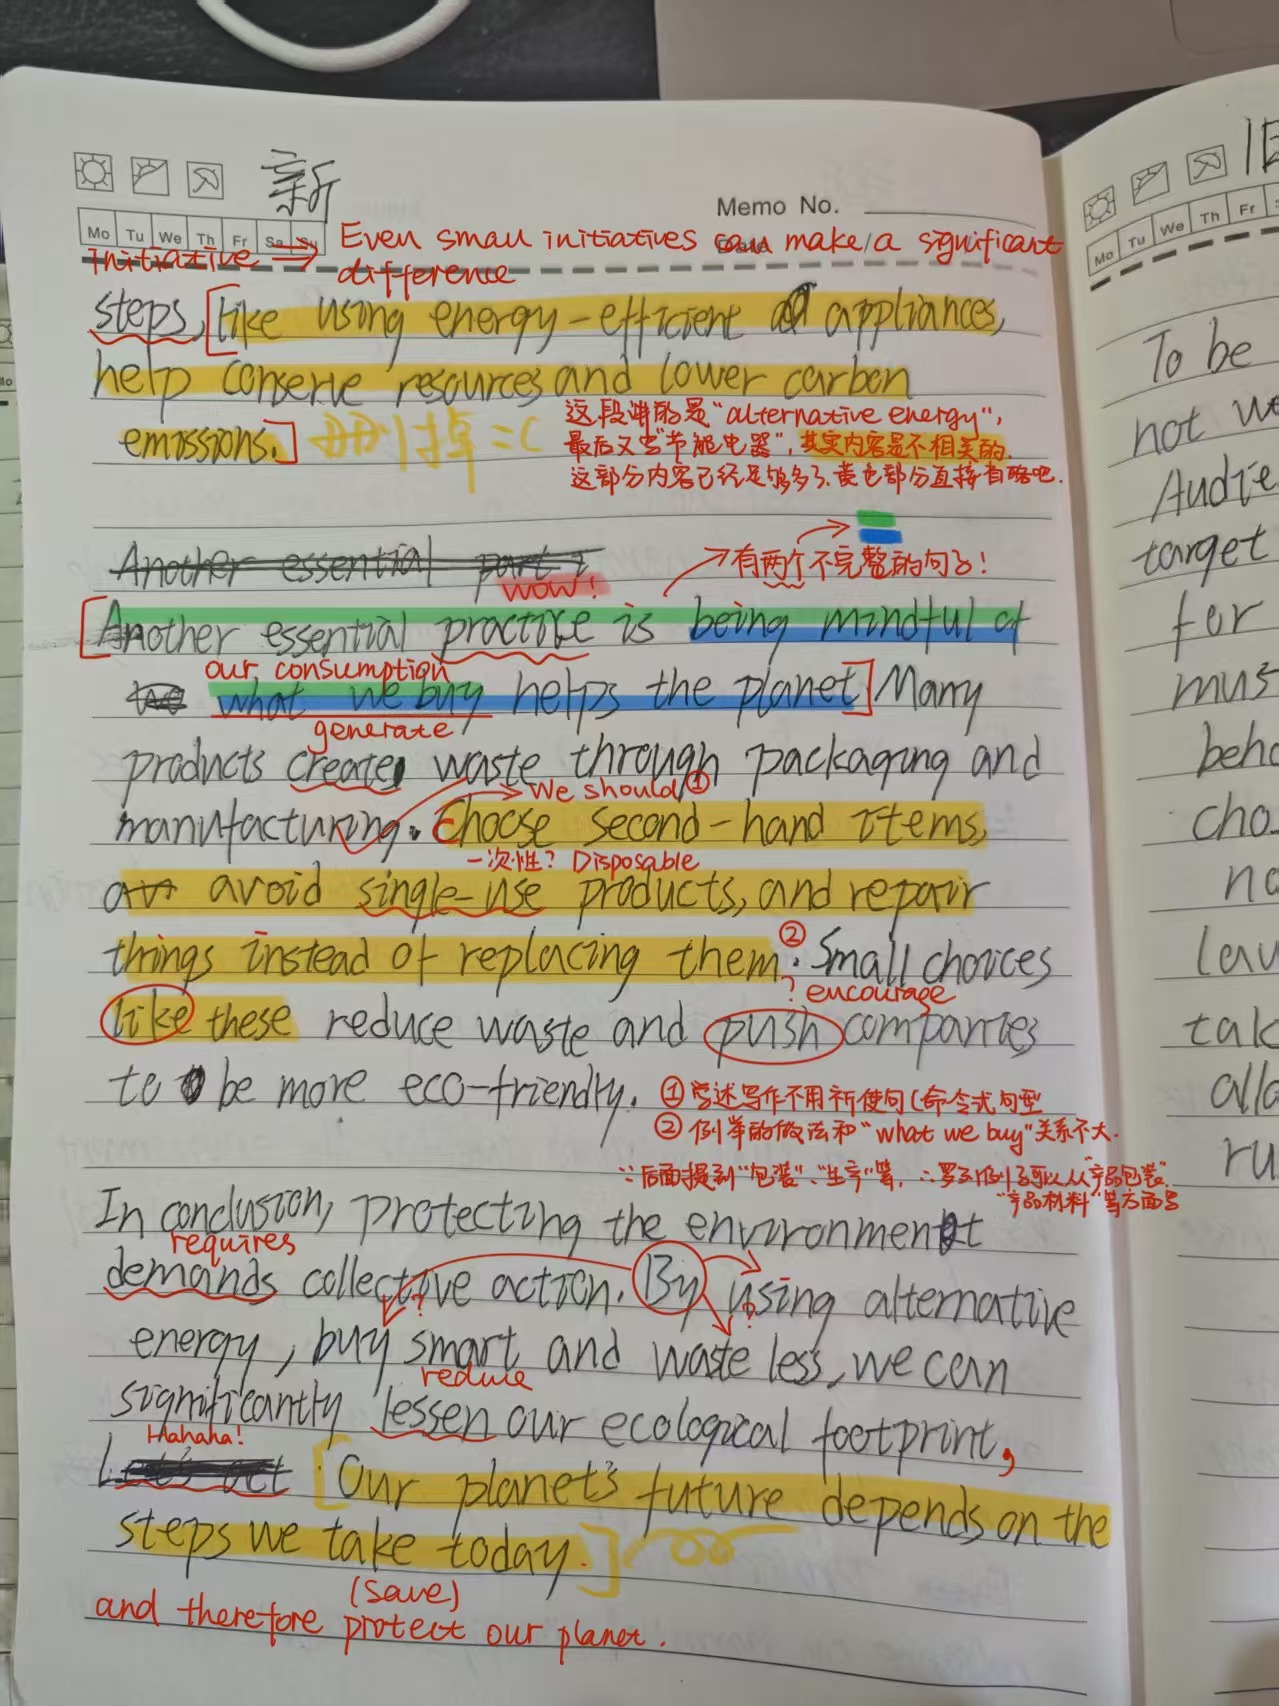 新
Memo No.
Mo Tu We Th Fr Sa Su
Initiative → Even small initiatives can make a significant
difference
steps, [like using energy-efficient appliances,
help conserve resources and lower carbon
emissions.] 删掉 =C
这段讲的是"alternative energy",
最后又写"节能电器",其实内容是不相关的.
这部分内容已经足够多了.黄色部分直接省略吧.
Another essential part i
wow!
有两个不完整的句子!
[Another essential practice is being mindful of
our consumption
what we buy helps the planet] Many
generate
products create waste through packaging and
We should ①
manufacturing. Choose second-hand items,
一次性? Disposable
avoid single-use products, and repair
things instead of replacing them. ② Small choices
? encourage
like these reduce waste and push companies
to be more eco-friendly.
① 写述写作不用祈使句(命令式句型
② 例举的做法和"what we buy"关系不大.
∵后面提到"包装"、"生产"等, ∴罗列例子可以从"产品包装",
"产品材料"等方面写
In conclusion, protecting the environment
requires
demands collective action. By using alternative
? ?
energy, buy smart and waste less, we can
reduce
significantly lessen our ecological footprint,
Hahaha!
Let's act [Our planet's future depends on the
steps we take today.]
(save)
and therefore protect our planet.
旧
Mo Tu We Th Fr
To be
not we
Audie
target
for
mus
beha
cho
no
law
tak
allo
ru